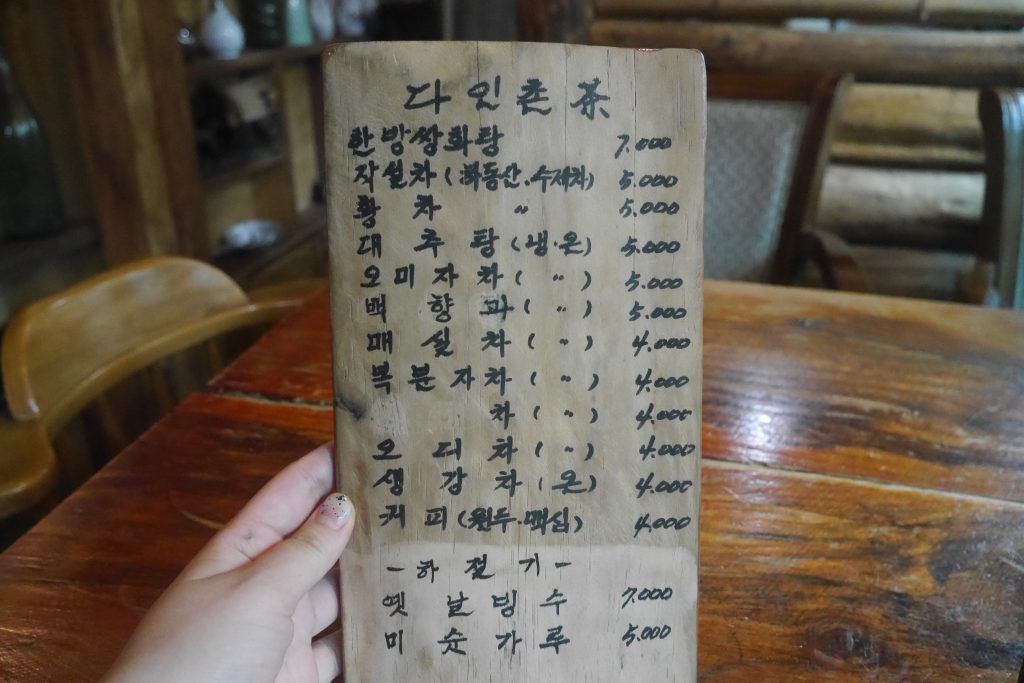 다인촌 茶
한방쌍화탕 7.000
작설차 (하동산.수제차) 5.000
황차 〃 5.000
대추탕 (냉.온) 5.000
오미자차 ( 〃 ) 5.000
백향과 ( 〃 ) 5.000
매실차 ( 〃 ) 4.000
복분자차 ( 〃 ) 4.000
차 ( 〃 ) 4.000
오디차 ( 〃 ) 4.000
생강차 (온) 4.000
커피 (원두.맥심) 4.000
-하절기-
옛날빙수 7.000
미숫가루 5.000